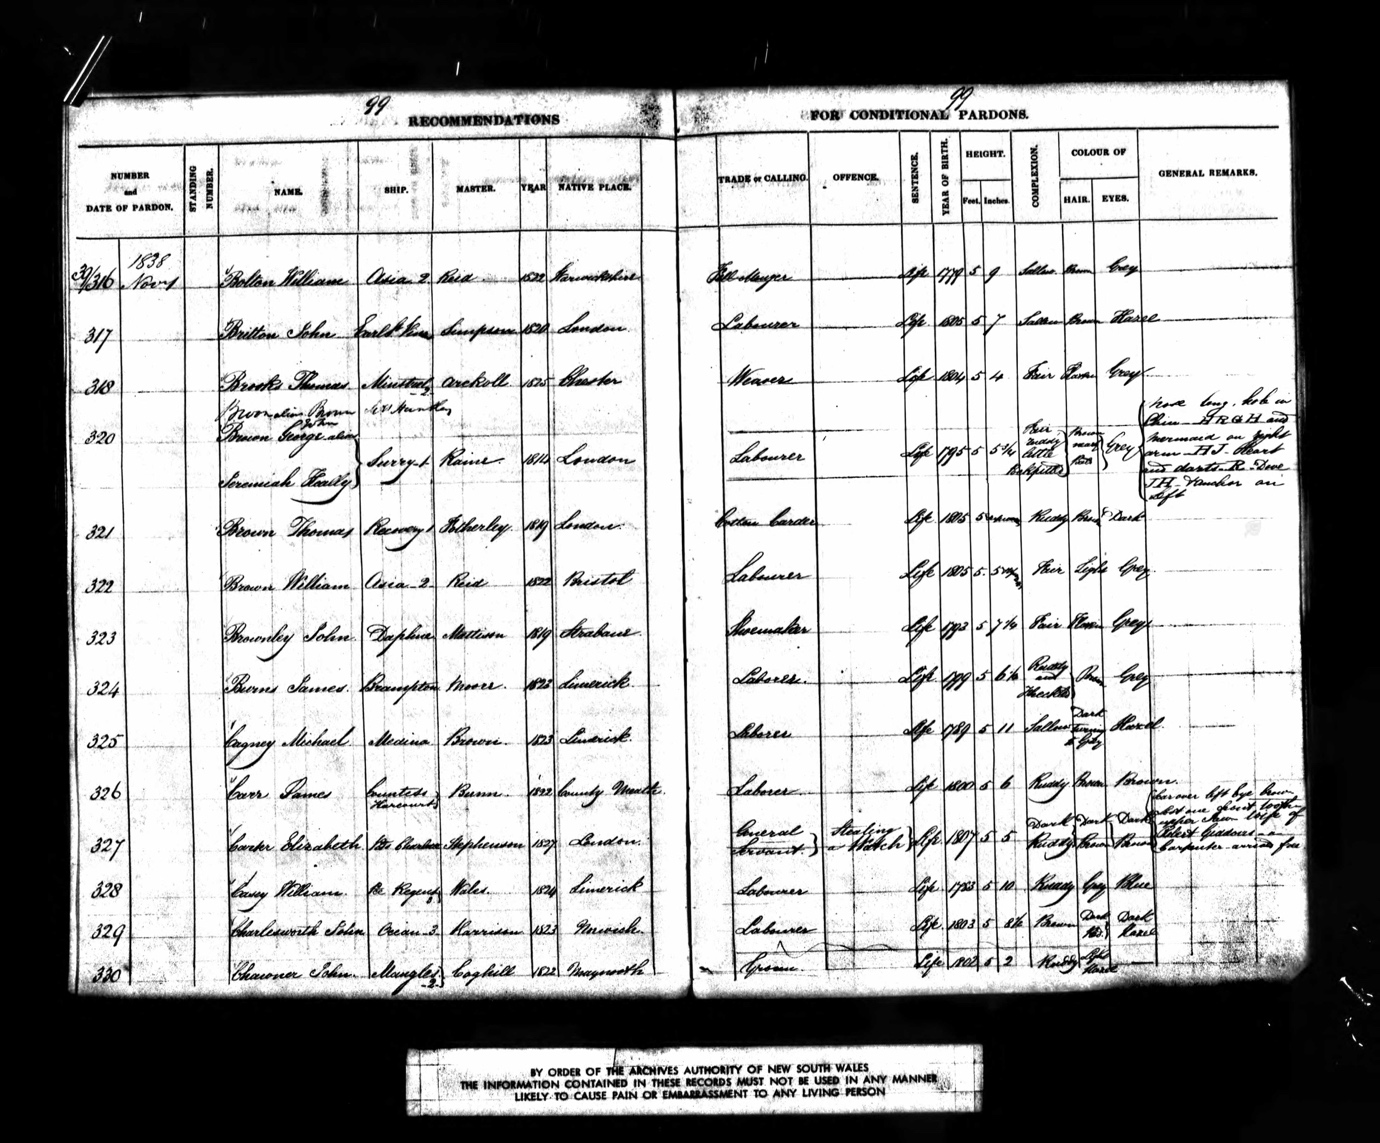 99 99
RECOMMENDATIONS FOR CONDITIONAL PARDONS.
NUMBER and DATE OF PARDON. STANDING NUMBER. NAME. SHIP. MASTER. YEAR NATIVE PLACE. TRADE or CALLING. OFFENCE. SENTENCE. YEAR OF BIRTH. HEIGHT. Feet. Inches. COMPLEXION. COLOUR OF HAIR. EYES. GENERAL REMARKS.
1838
39/316 Nov 1 Bolton William Asia 2 Reid 1822 Warwickshire Life 1779 5 9 Sallow Brown Grey
317 Britton John Simpson 1820 London Labourer Life 1805 5 7 Sallow Brown Hazel
318 Brooks Thomas Minstrel Arckoll 1825 Chester Weaver Life 1804 5 4 Fair Grey
Brown alias Brown
John
320 Brown George alias Jeremiah Healy Surry 1 Raine 1814 London Labourer Life 1795 5 5 3/4 Fair Ruddy little Pockpitted Brown Grey
Nose long, hole in
Chin - HRGH and
mermaid on right
arm - HJ Heart
and darts - R - Dove
JH - Anchor on
left
321 Brown Thomas Recovery 1 Fotherley 1819 London Cotton Carder Life 1805 5 Ruddy Brown Dark
322 Brown William Asia 2 Reid 1822 Bristol Labourer Life 1805 5 5 Fair Light Grey
323 Brownley John Daphne Mattison 1819 Strabane Shoemaker Life 1793 5 7 1/4 Fair Flaxen Grey
324 Burns James Brampton Moore 1823 Limerick Laborer Life 1799 5 6 1/2 Ruddy and Freckled Brown Grey
325 Cagney Michael Medina Brown 1823 Limerick Laborer Life 1789 5 11 Sallow Dark Turning to Grey Hazel
326 Carr James Countess Harcourt Bunn 1822 County Meath Laborer Life 1800 5 6 Ruddy Brown Brown
327 Carter Elizabeth Pss Charlotte Stephenson 1827 London General Servant Stealing a Watch Life 1807 5 5 Dark Ruddy Dark Brown Dark Brown
Scar over left eye brow
lost one front tooth
upper jaw wife of
Robert Giddons a
Carpenter arrived free
328 Casey William Pe Regent 3 Wales 1824 Limerick Labourer Life 1783 5 10 Ruddy Grey Blue
329 Charlesworth John Ocean 3 Harrison 1823 Norwich Labourer Life 1803 5 8 1/2 Brown Dark Dark Hazel
330 Chawner John Mangles 2 Coghill 1822 Maynooth Groom Life 1802 5 2 Ruddy
BY ORDER OF THE ARCHIVES AUTHORITY OF NEW SOUTH WALES
THE INFORMATION CONTAINED IN THESE RECORDS MUST NOT BE USED IN ANY MANNER
LIKELY TO CAUSE PAIN OR EMBARRASSMENT TO ANY LIVING PERSON